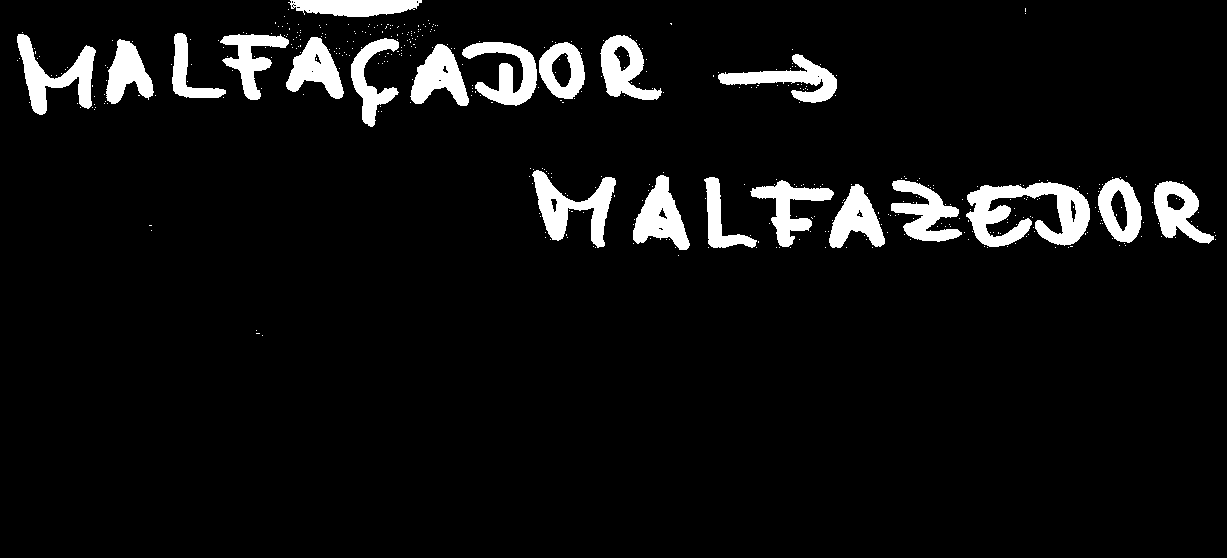 MALFAÇADOR →
MALFAZEDOR